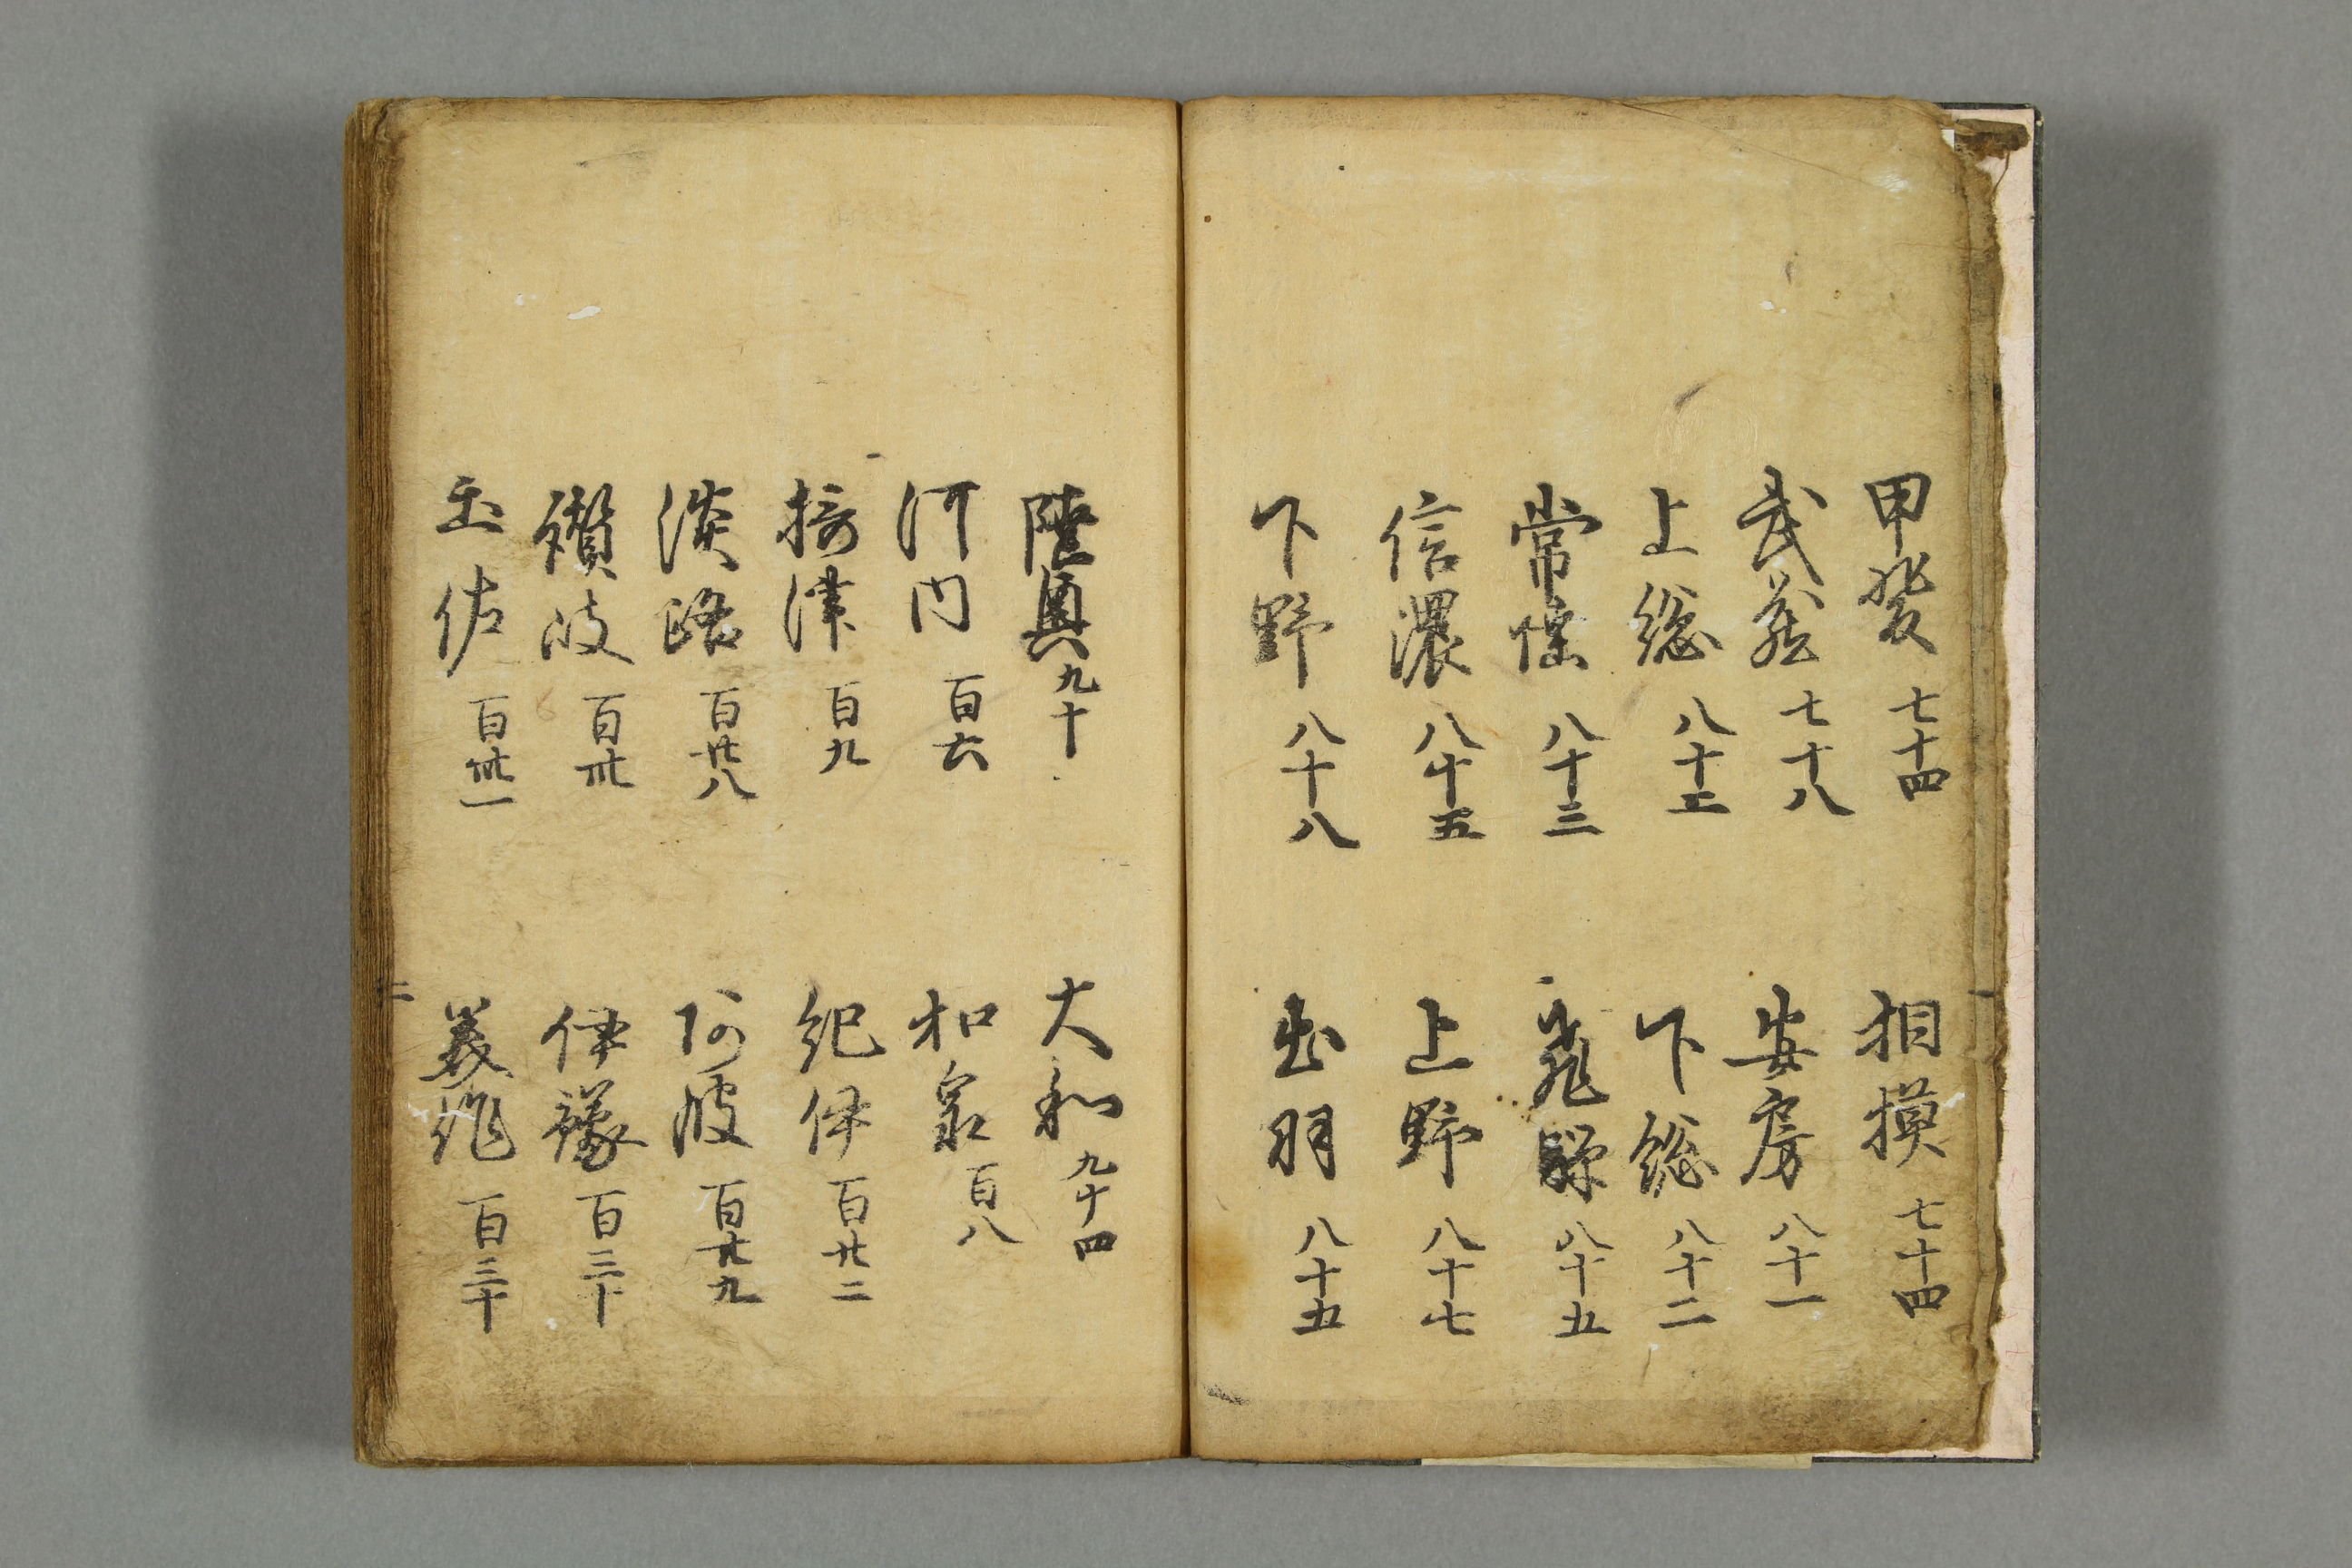 甲斐 七十四 相摸 七十四
武蔵 七十八 安房 八十一
上総 八十二 下総 八十二
常陸 八十三 飛騨 八十五
信濃 八十五 上野 八十七
下野 八十八 出羽 八十五
陸奥 九十 大和 九十四
河内 百六 和泉 百八
摂津 百九 紀伊 百廿二
淡路 百廿八 阿波 百廿九
讃岐 百卅 伊豫 百三十
土佐 百卅一 美作 百三十